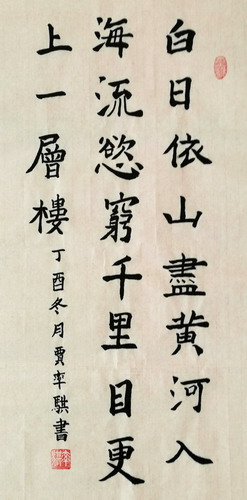 白日依山盡黄河入
海流慾窮千里目更
上一層樓
丁酉冬月賈率騏書